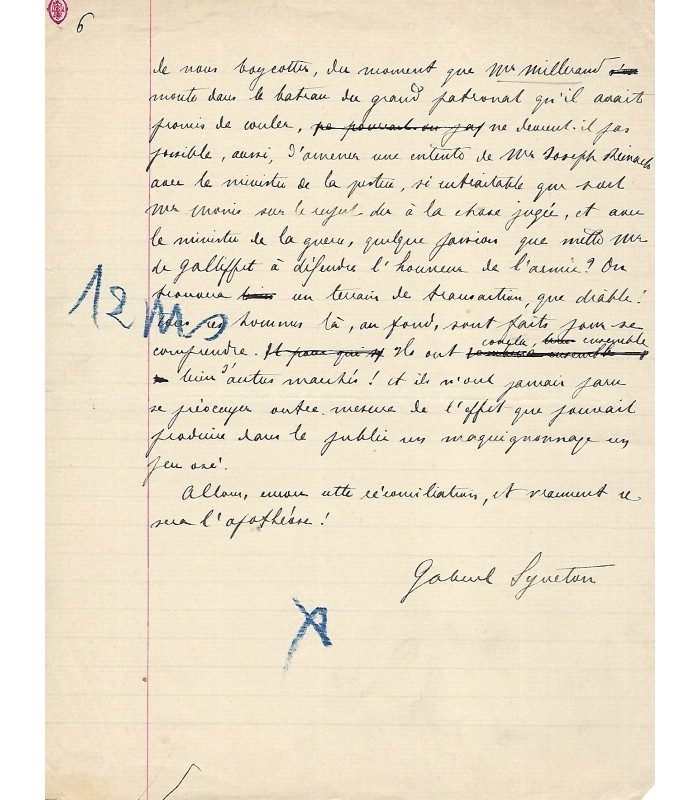 6
de nous boycotter, du moment que Mr Millerand
monte dans le bateau du grand patronat qu'il avait
promis de couler, ne pourrait-on pas ne devient-il pas
possible, aussi, d'amener une entente de Mr Joseph Reinach
avec le ministre de la justice, si intraitable que soit
Mr Monis sur le respect du à la chose jugée, et avec
le ministre de la guerre, quelque passion que mette Mr
de Galliffet à défendre l'honneur de l'armée? On
trouvera bien un terrain de transaction, que diable!
Tous ces hommes là, au fond, sont faits pour se
comprendre. Ils ont conclu, ensemble
bien d'autres marchés! et ils n'ont jamais paru
se préoccuper outre mesure de l'effet que pouvait
produire dans le public un maquignonnage un
peu osé.
Allons, encore cette réconciliation, et vraiment ce
sera l'apothéose!
Gabriel Syveton
12